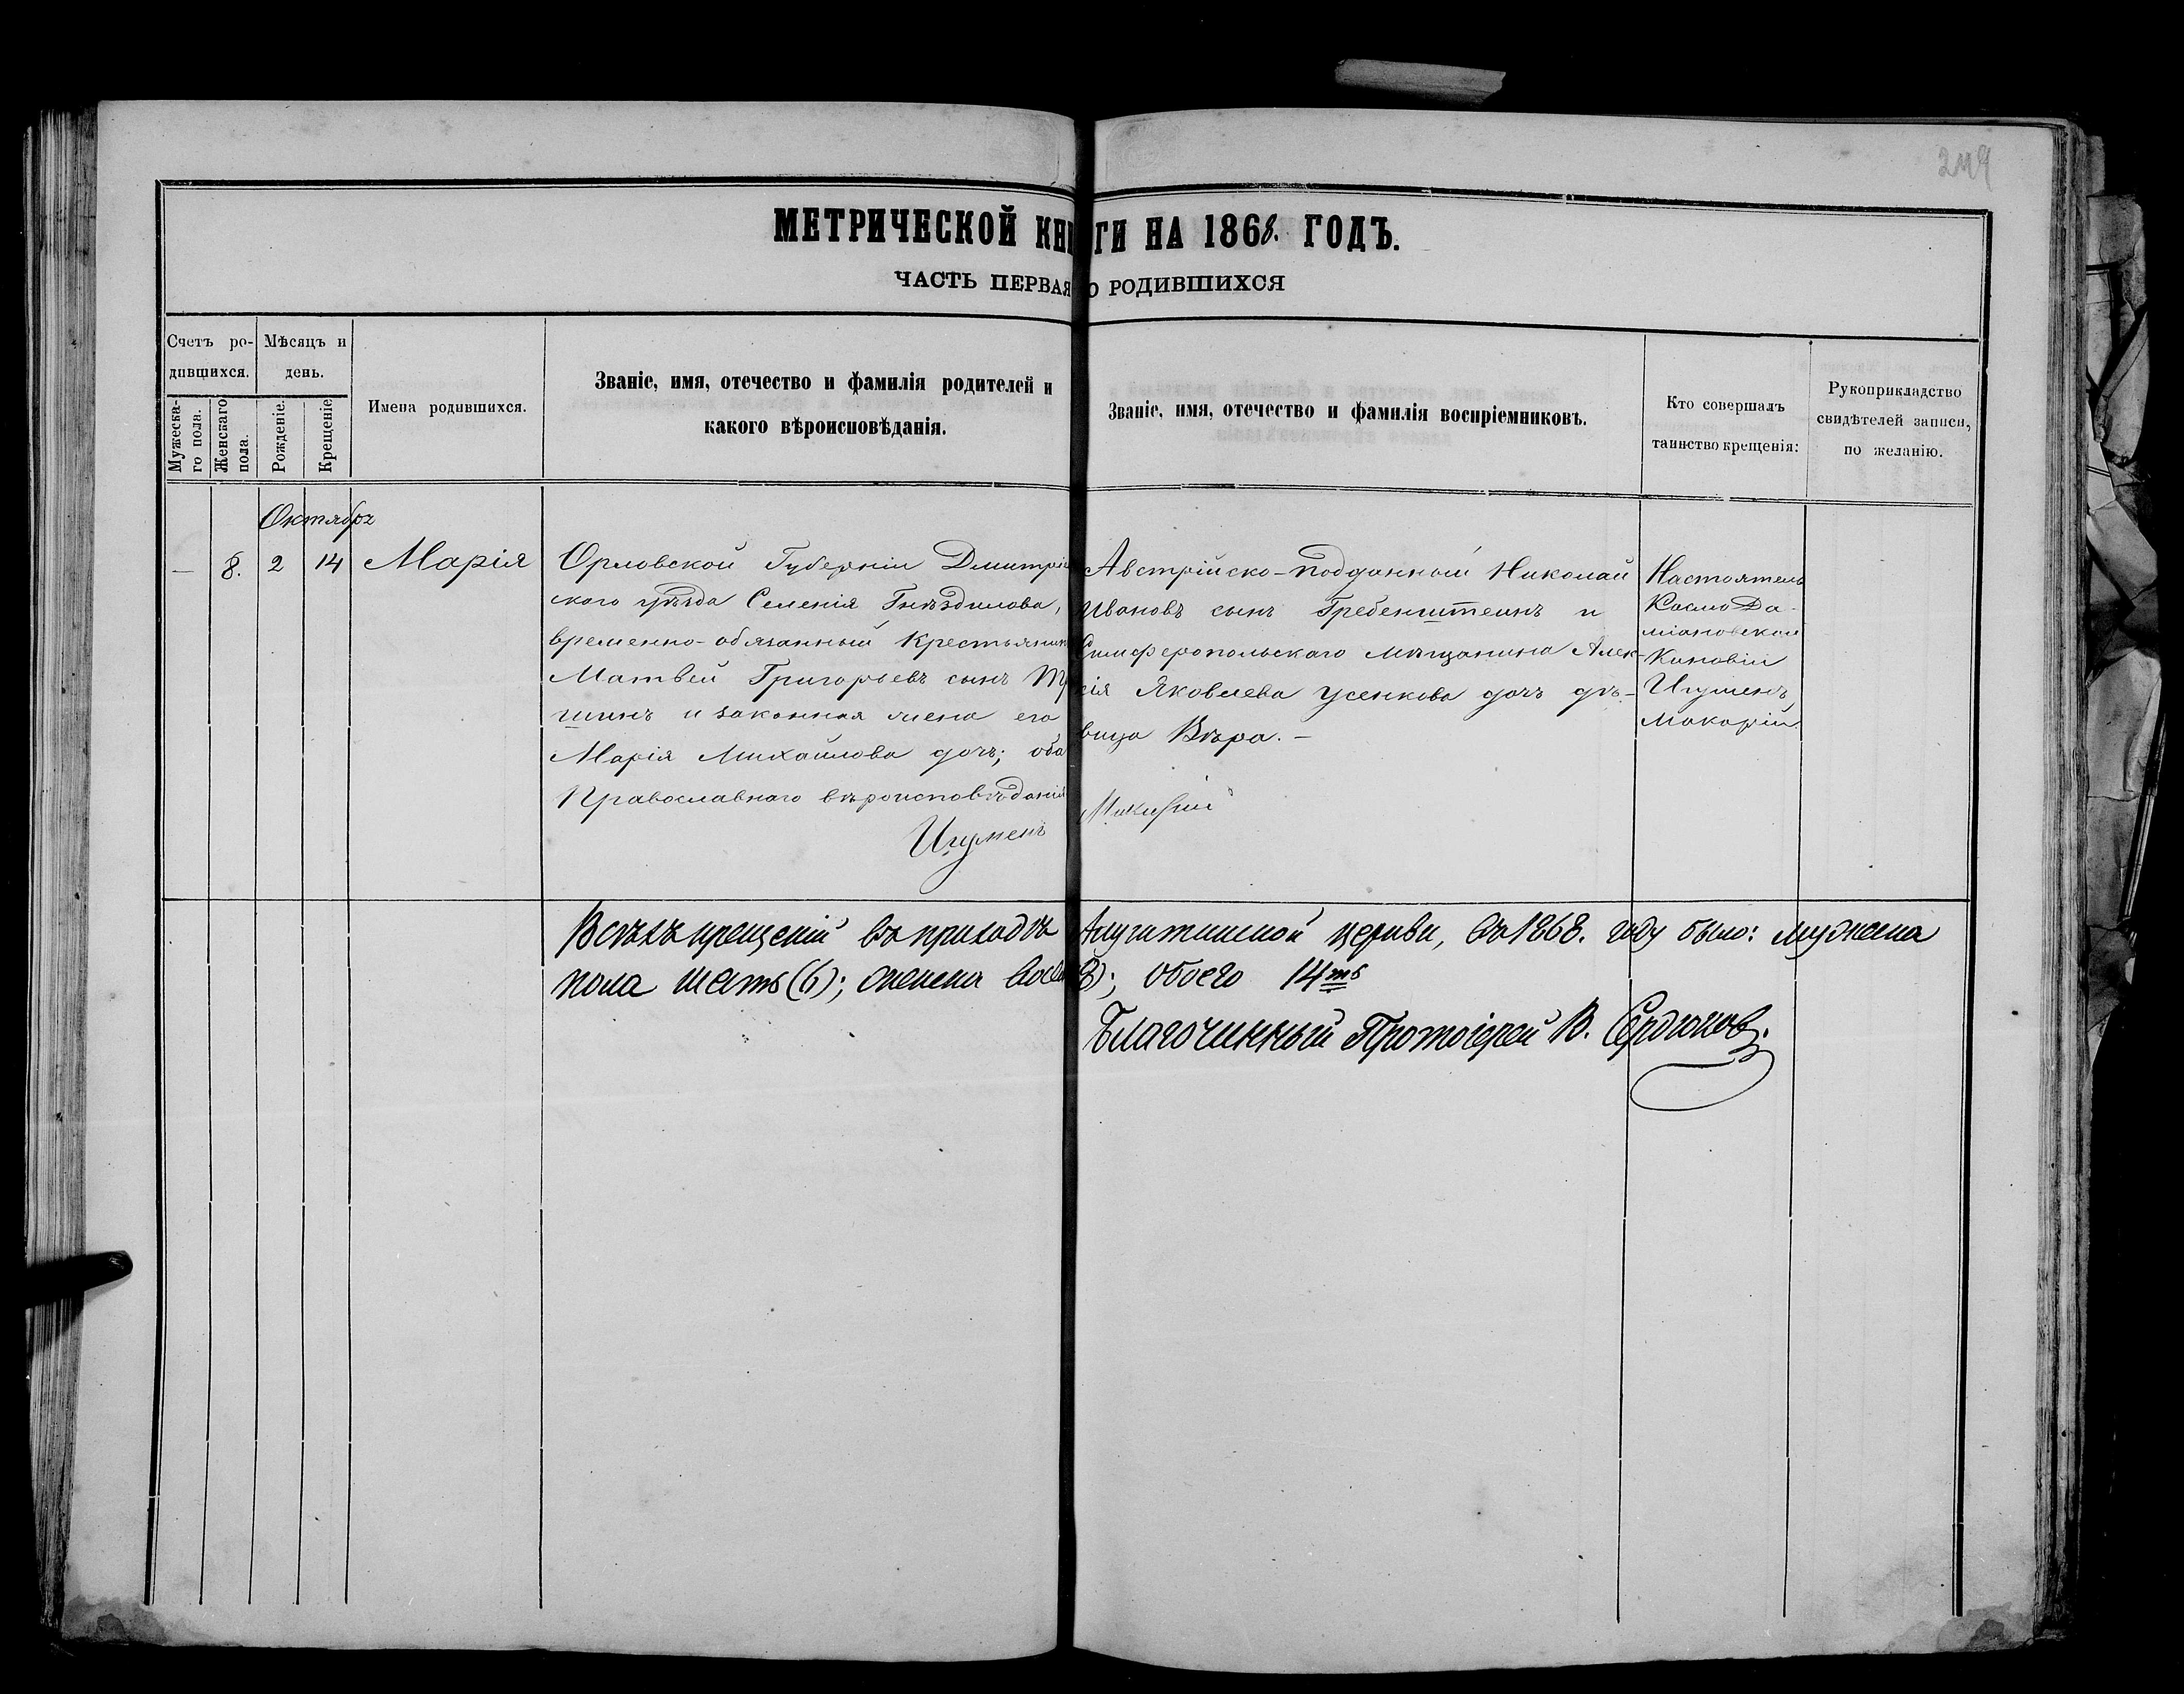 249
МЕТРИЧЕСКОЙ КНИГИ НА 1868. ГОДЪ.
ЧАСТЬ ПЕРВАЯ О РОДИВШИХСЯ
Счетъ ро-
дившихся.
Мужеска-
го пола.
Женскаго
пола.
Мѣсяцъ и
день.
Рожденіе.
Крещеніе
Имена родившихся.
Званіе, имя, отечество и фамилія родителей и
какого вѣроисповѣданія.
Званіе, имя, отечество и фамилія воспріемниковъ.
Кто совершалъ
таинство крещенія:
Рукоприкладство
свидѣтелей записи,
по желанію.
Октябрь
— 8. 2 14 Марія
Орловской Губерніи Дмитрів
скаго уѣзда Селенія Гнѣздилова,
временно-обязанный Крестьянин
Матвей Григорьевъ сынъ
шинъ и законная жена его
Марія Михайлова дочь; оба
Православнаго вѣроисповѣданія
Игуменъ Макарій
Австрійско-подданный Николай
Ивановъ сынъ Гребенштеинъ и
Симферопольскаго мѣщанина Алек-
сія Яковлева Усенкова дочь дѣ-
вица Вѣра. —
Настоятель
Космо Да-
міановской
Киновіи
Игуменъ
Макарій.
Всѣхъ крещеній въ приходѣ Алуштинской церкви, въ 1868. году было: мужеска
пола шесть (6); женска восем 8); обоего 14ть
Благочинный Протоіерей В. Сердюковъ.